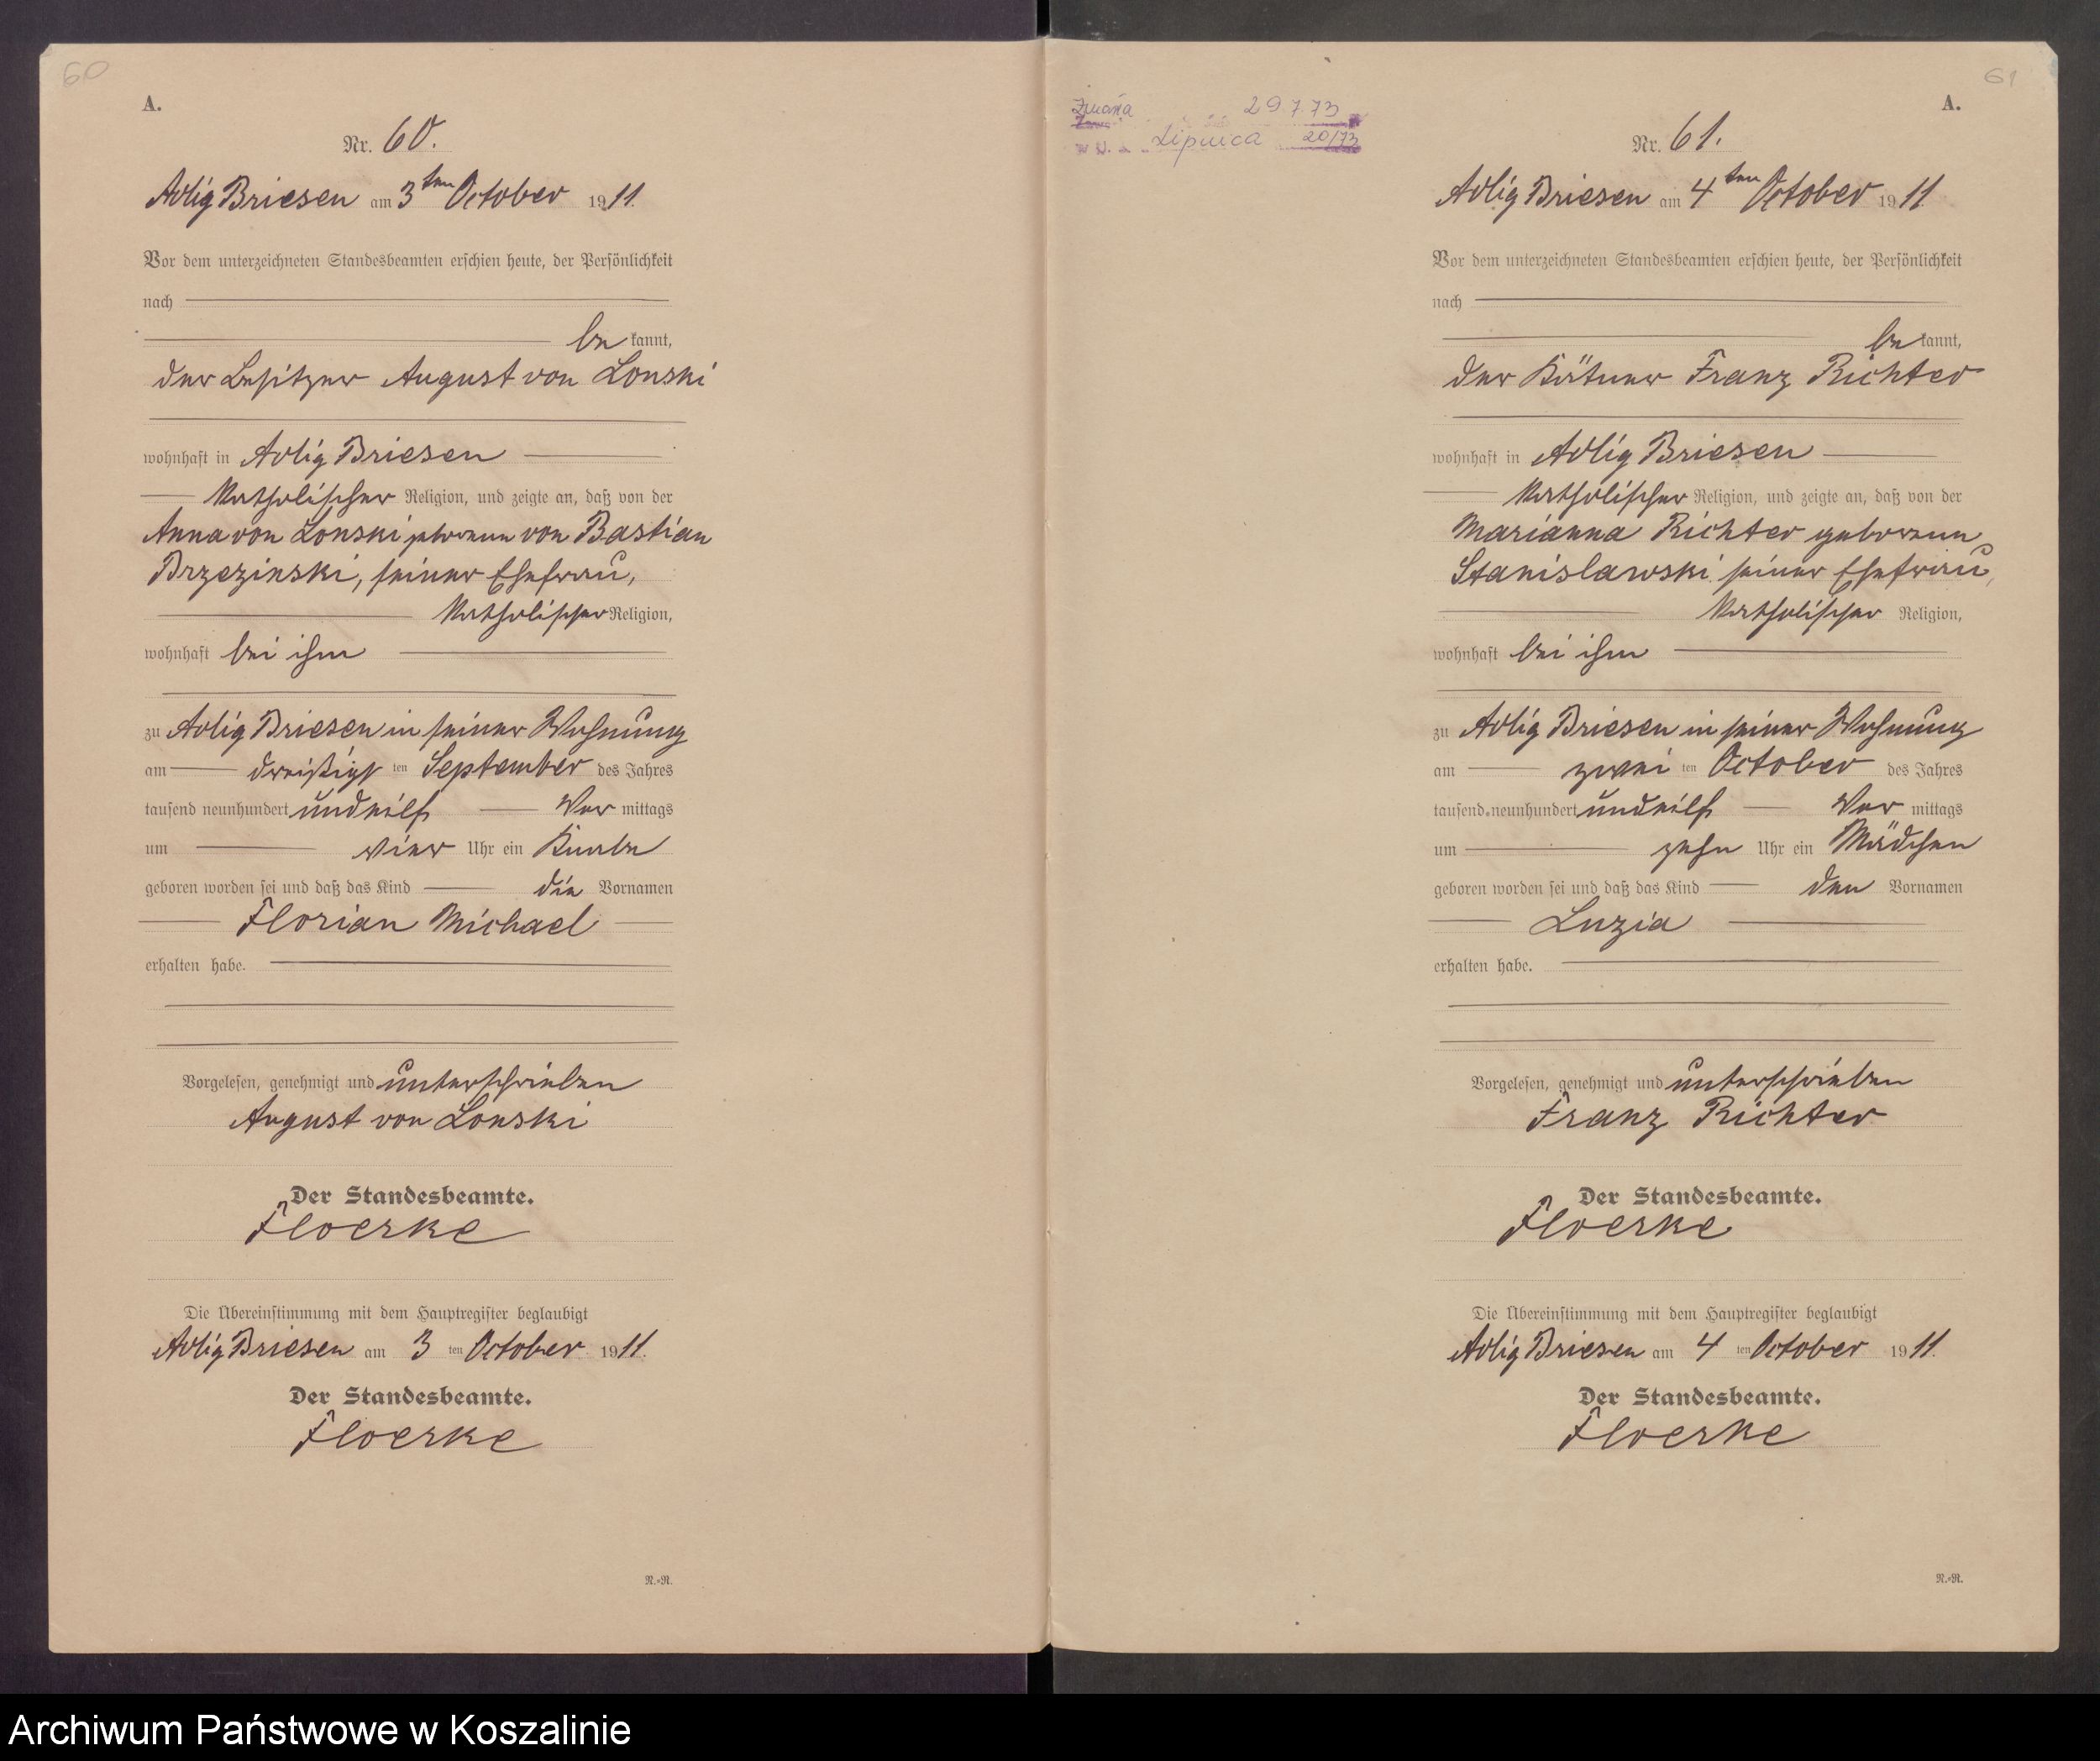 60
A.
Nr. 60.
Adlig Briesen am 3ten October 1911.
Vor dem unterzeichneten Standesbeamten erschien heute, der Persönlichkeit
nach
be kannt,
der Besitzer August von Lonski
wohnhaft in Adlig Briesen
katholischer Religion, und zeigte an, daß von der
Anna von Lonski geborenen von Bastian
Brzezinski, seiner Ehefrau,
katholischer Religion,
wohnhaft bei ihm
zu Adlig Briesen in seiner Wohnung
am dreißigsten September des Jahres
tausend neunhundert undeilf Vor mittags
um vier Uhr ein Knabe
geboren worden sei und daß das Kind die Vornamen
Florian Michael
erhalten habe.
Vorgelesen, genehmigt und unterschrieben
August von Lonski
Der Standesbeamte.
Floerke
Die Übereinstimmung mit dem Hauptregister beglaubigt
Adlig Briesen am 3 ten October 1911.
Der Standesbeamte.
Floerke
N.=N.
61
29.7.73
Lipnica 20/73
A.
Nr. 61.
Adlig Briesen am 4ten October 1911.
Vor dem unterzeichneten Standesbeamten erschien heute, der Persönlichkeit
nach
be kannt,
der Kätner Franz Richter
wohnhaft in Adlig Briesen
katholischer Religion, und zeigte an, daß von der
Marianna Richter geborenen
Stanislawski seiner Ehefrau,
katholischer Religion,
wohnhaft bei ihm
zu Adlig Briesen in seiner Wohnung
am zwei ten October des Jahres
tausend neunhundert undeilf Vor mittags
um zehn Uhr ein Mädchen
geboren worden sei und daß das Kind den Vornamen
Luzia
erhalten habe.
Vorgelesen, genehmigt und unterschrieben
Franz Richter
Der Standesbeamte.
Floerke
Die Übereinstimmung mit dem Hauptregister beglaubigt
Adlig Briesen am 4 ten October 1911.
Der Standesbeamte.
Floerke
N.=N.
Archiwum Państwowe w Koszalinie